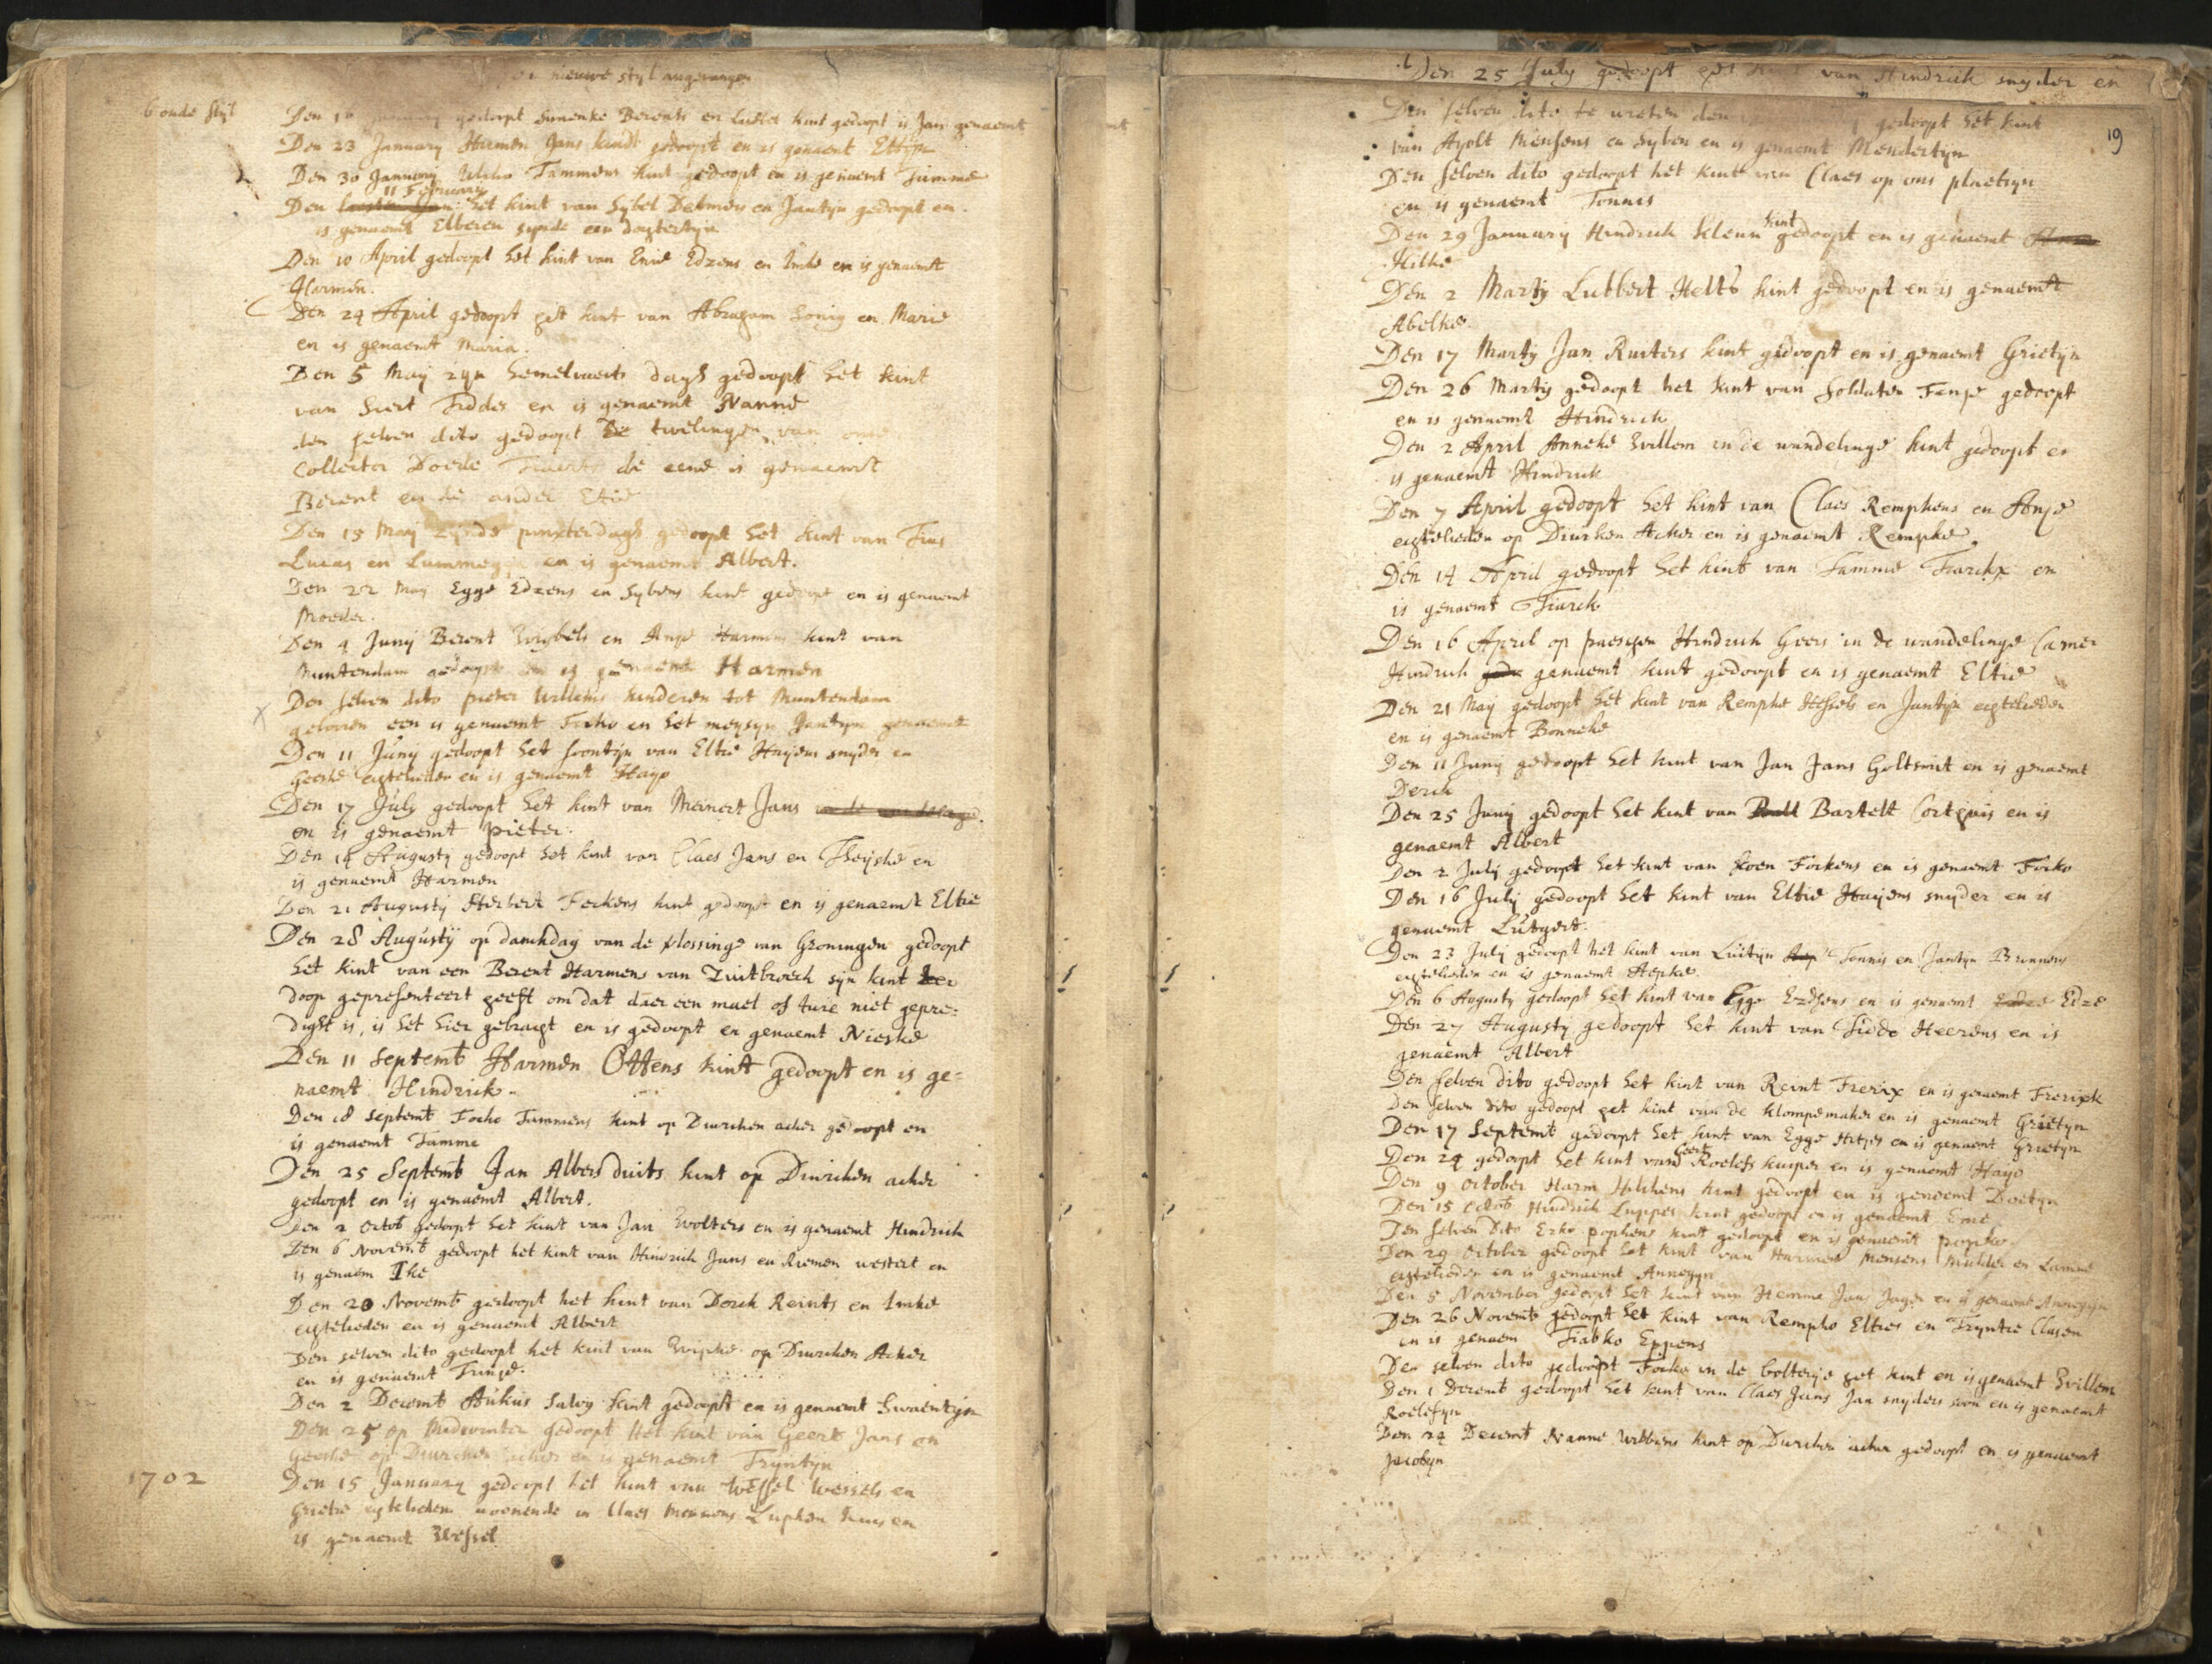 nieuwe stijl angevangen
6 oude stijl
Den gedoopt Simenke Berents en kint gedoopt is Jan genaemt
Den 23 January Harmen Jans kindt gedoopt en is genaemt Eltijn
Den 30 January Ubbo Tammens kint gedoopt en is genaemt Tamme
11 February
Den het kint van Sybel Detmers en Jantyn gedoopt en
is genaemt Elberen synde een dogtertyn
Den 10 April gedoopt het kint van Enne Edzens en Imke en is genaemt
Harmen.
Den 24 April gedoopt het kint van Abragam Konig en Marie
en is genaemt Maria.
Den 5 Maij zyn hemelvaerts dagh gedoopt het kint
van Siert Fiddes en is genaemt Nanne
den selven dito gedoopt de twelingen van onse
Collector Doede de eene is genaemt
Berent en de ander Etie
Den 15 Maij zijnde pinxterdagh gedoopt het kint van Tius
Lucas en en is genaemt Albert.
Den 22 Maij Egge Edzens en Sybens kint gedoopt en is genaemt
Moeder.
Den 4 Junij Berent Wybels en Anje Harmens kint van
Muntendam gedoopt en is genaemt Harmen
Den selven dito pieter Willems kinderen tot Muntendam
geboren een is genaemt Focko en het meysyn Jantyn genaemt
Den 11 Juny gedoopt het soontyn van Eltie Hayens snyder en
Geeske egtelieden en is genaemt Hayo
Den 17 July gedoopt het kint van Meinert Jans
en is genaemt pieter.
Den 14 Augusty gedoopt het kint van Claes Jans en Theyske en
is genaemt Harmen
Den 21 Augusty Herbert Fockens kint gedoopt en is genaemt Eltie
Den 28 Augustÿ op danckdag van de verlossinge van Groningen gedoopt
het kint van een Berent Harmens van Zuitbroeck syn kint ter
doop gepresenteert heeft om dat daer een mael of twie niet gepre:
dight is, is het hier gebragt en is gedoopt en genaemt Nieske
Den 11 Septemb Harmen Ottens kint gedoopt en is ge=
naemt Hindrick.
Den 18 Septemb Focko Tammens kint op Duurcken acker gedoopt en
is genaemt Tamme
Den 25 Septemb Jan Albers duits kint op Duurcken acker
gedoopt en is genaemt Albert.
Den 2 Octob gedoopt het kint van Jan Wolters en is genaemt Hindrick
Den 6 Novemb gedoopt het kint van Hindrick Jans en Riemen westert en
is genaem Ike
Den 20 Novemb gedoopt het kint van Derck Reints en Imke
egtelieden en is genaemt Albert
Den selven dito gedoopt het kint van op Duurcken Acker
en is genaemt Trinje.
Den 2 Decemb Aukius Salvy kint gedoopt en is genaemt Swaentyn
Den 25 op Midwinter gedoopt Het kint van Geert Jans en
Geeske op Duurcken acker en is genaemt Tryntyn
1702
Den 15 January gedoopt het kint van Wessel Wessels en
Grietie egtelieden woonende in Claes Mennens Lupken huis en
is genaemt Wessel
Den 25 July gedoopt het kint van Hindrick snyder en
19
Den selven dito te weten den gedoopt het kint
van Ayolt Mensens en Syben en is genaemt Mendertyn
Den selven dito gedoopt het kint van Claes op ons plaetsyn
en is genaemt Tonnis
Den 29 January Hindrick Kleun kint gedoopt en is genaemt
Hilke
Den 2 Martij Lubbert Helts kint gedoopt en is genaemt
Abelke.
Den 17 Martij Jan Ruiters kint gedoopt en is genaemt Grietijn
Den 26 Martij gedoopt het kint van soldaten Fenje gedoopt
en is genaemt Hindrick
Den 2 April Anneke Willem in de wandelinge kint gedoopt en
is genaemt Hindrick
Den 7 April gedoopt het kint van Claes Rempkens en Anje
egtelieden op Duurken Acker en is genaemt Rempke.
Den 14 April gedoopt het kint van Tamme Tiarckx en
is genaemt Tiarck
Den 16 April op paeschen Hindrick Geers in de wandelinge Camer
Hindrick genaemt kint gedoopt en is genaemt Eltie
Den 21 Maij gedoopt het kint van Rempke Wessels en Jantijn egtelieden
en is genaemt Bonneke
Den 11 Junij gedoopt het kint van Jan Jans Holtsnit en is genaemt
Derck
Den 25 Junij gedoopt het kint van Bartelt Corthuis en is
genaemt Albert
Den 2 July gedoopt het kint van Koen Fockens en is genaemt Focko
Den 16 July gedoopt het kint van Eltie Hayens snyder en is
genaemt Lutgert.
Den 23 July gedoopt het kint van Luitijn Tonnis en Jantyn Brunnens
egtelieden en is genaemt Hepke
Den 6 Augusty gedoopt het kint van Egge Edsens en is genaemt Edze
Den 27 Augusty gedoopt het kint van Fidde Heerens en is
genaemt Albert
Den selven dito gedoopt het kint van Reint Frerixx en is genaemt Frerixk
Den selven dito gedoopt het kint van de klompemaker en is genaemt Grietyn
Den 17 Septemb gedoopt het kint van Egge Hitjes en is genaemt Grietyn
Den 24 gedoopt het kint van Geert Roelefs kuiper en is genaemt Hayo
Den 9 October Harm Hilckens kint gedoopt en is genaemt Doetyn
Den 15 Octob Hindrick Luppes kint gedoopt en is genaemt Eme
Den selven dito Ecko popkens kint gedoopt en is genaemt popko.
Den 29 October gedoopt het kint van Harmen Mensens Mulder en Lamme
egtelieden en is genaemt Annegyn
Den 5 November gedoopt het kint van Hemme Jans Jager en is genaemt Annegyn
Den 26 Novemb gedoopt het kint van Rempko Elties en Tryntie Clasen
en is genaem Fiabko Eppens
Den selven dito gedoopt Focko in de bolterije het kint en is genaemt Willem
Den 1 Decemb gedoopt het kint van Claes Jans Jan snyders soon en is genaemt
Roelefyn
Den 24 Decemb Nanne Wibbens kint op Duurcken acker gedoopt en is genaemt
Jacobyn